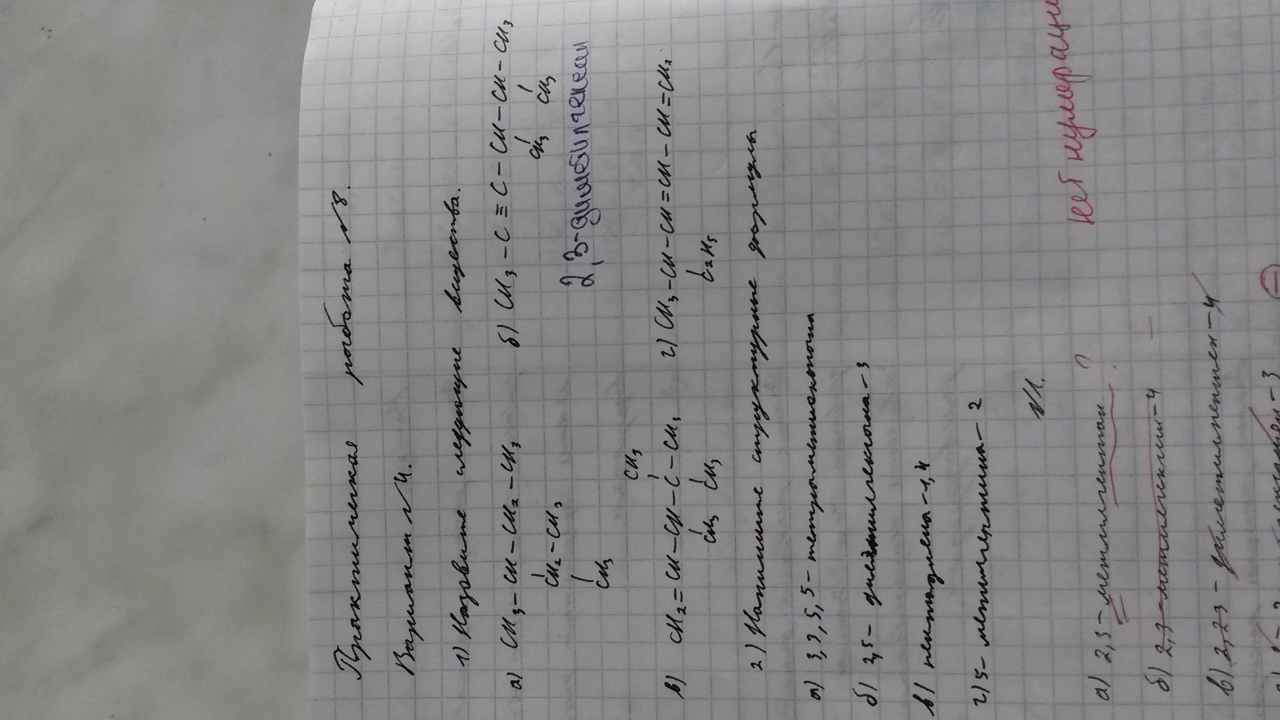 Практическая работа №8.
Вариант №4.
1) Назовите следующие вещества.
а) CH₃ – CH – CH₂ – CH₃ б) CH₃ – C ≡ C – CH – CH – CH₃
CH₂ – CH₃ CH₃ CH₃
CH₃ 2,3-диметилгексан
CH₃
в) CH₂ = CH – CH – C – CH₃ г) CH₃ – CH – CH = CH – CH = CH₂
CH₃ CH₃ C₂H₅
2) Напишите структурные формулы
а) 3,3,5,5 – тетраметилоктана
б) 2,5 – диметилгексина – 3
в) пентадиена – 1,4
г) 5 – метилгептина – 2
№1.
а) 2,3 – метилпентан ? нет нумерации
б) 2,3 – метилгексин – 4 –
в) 2,2,3 – диметилпентен – 4